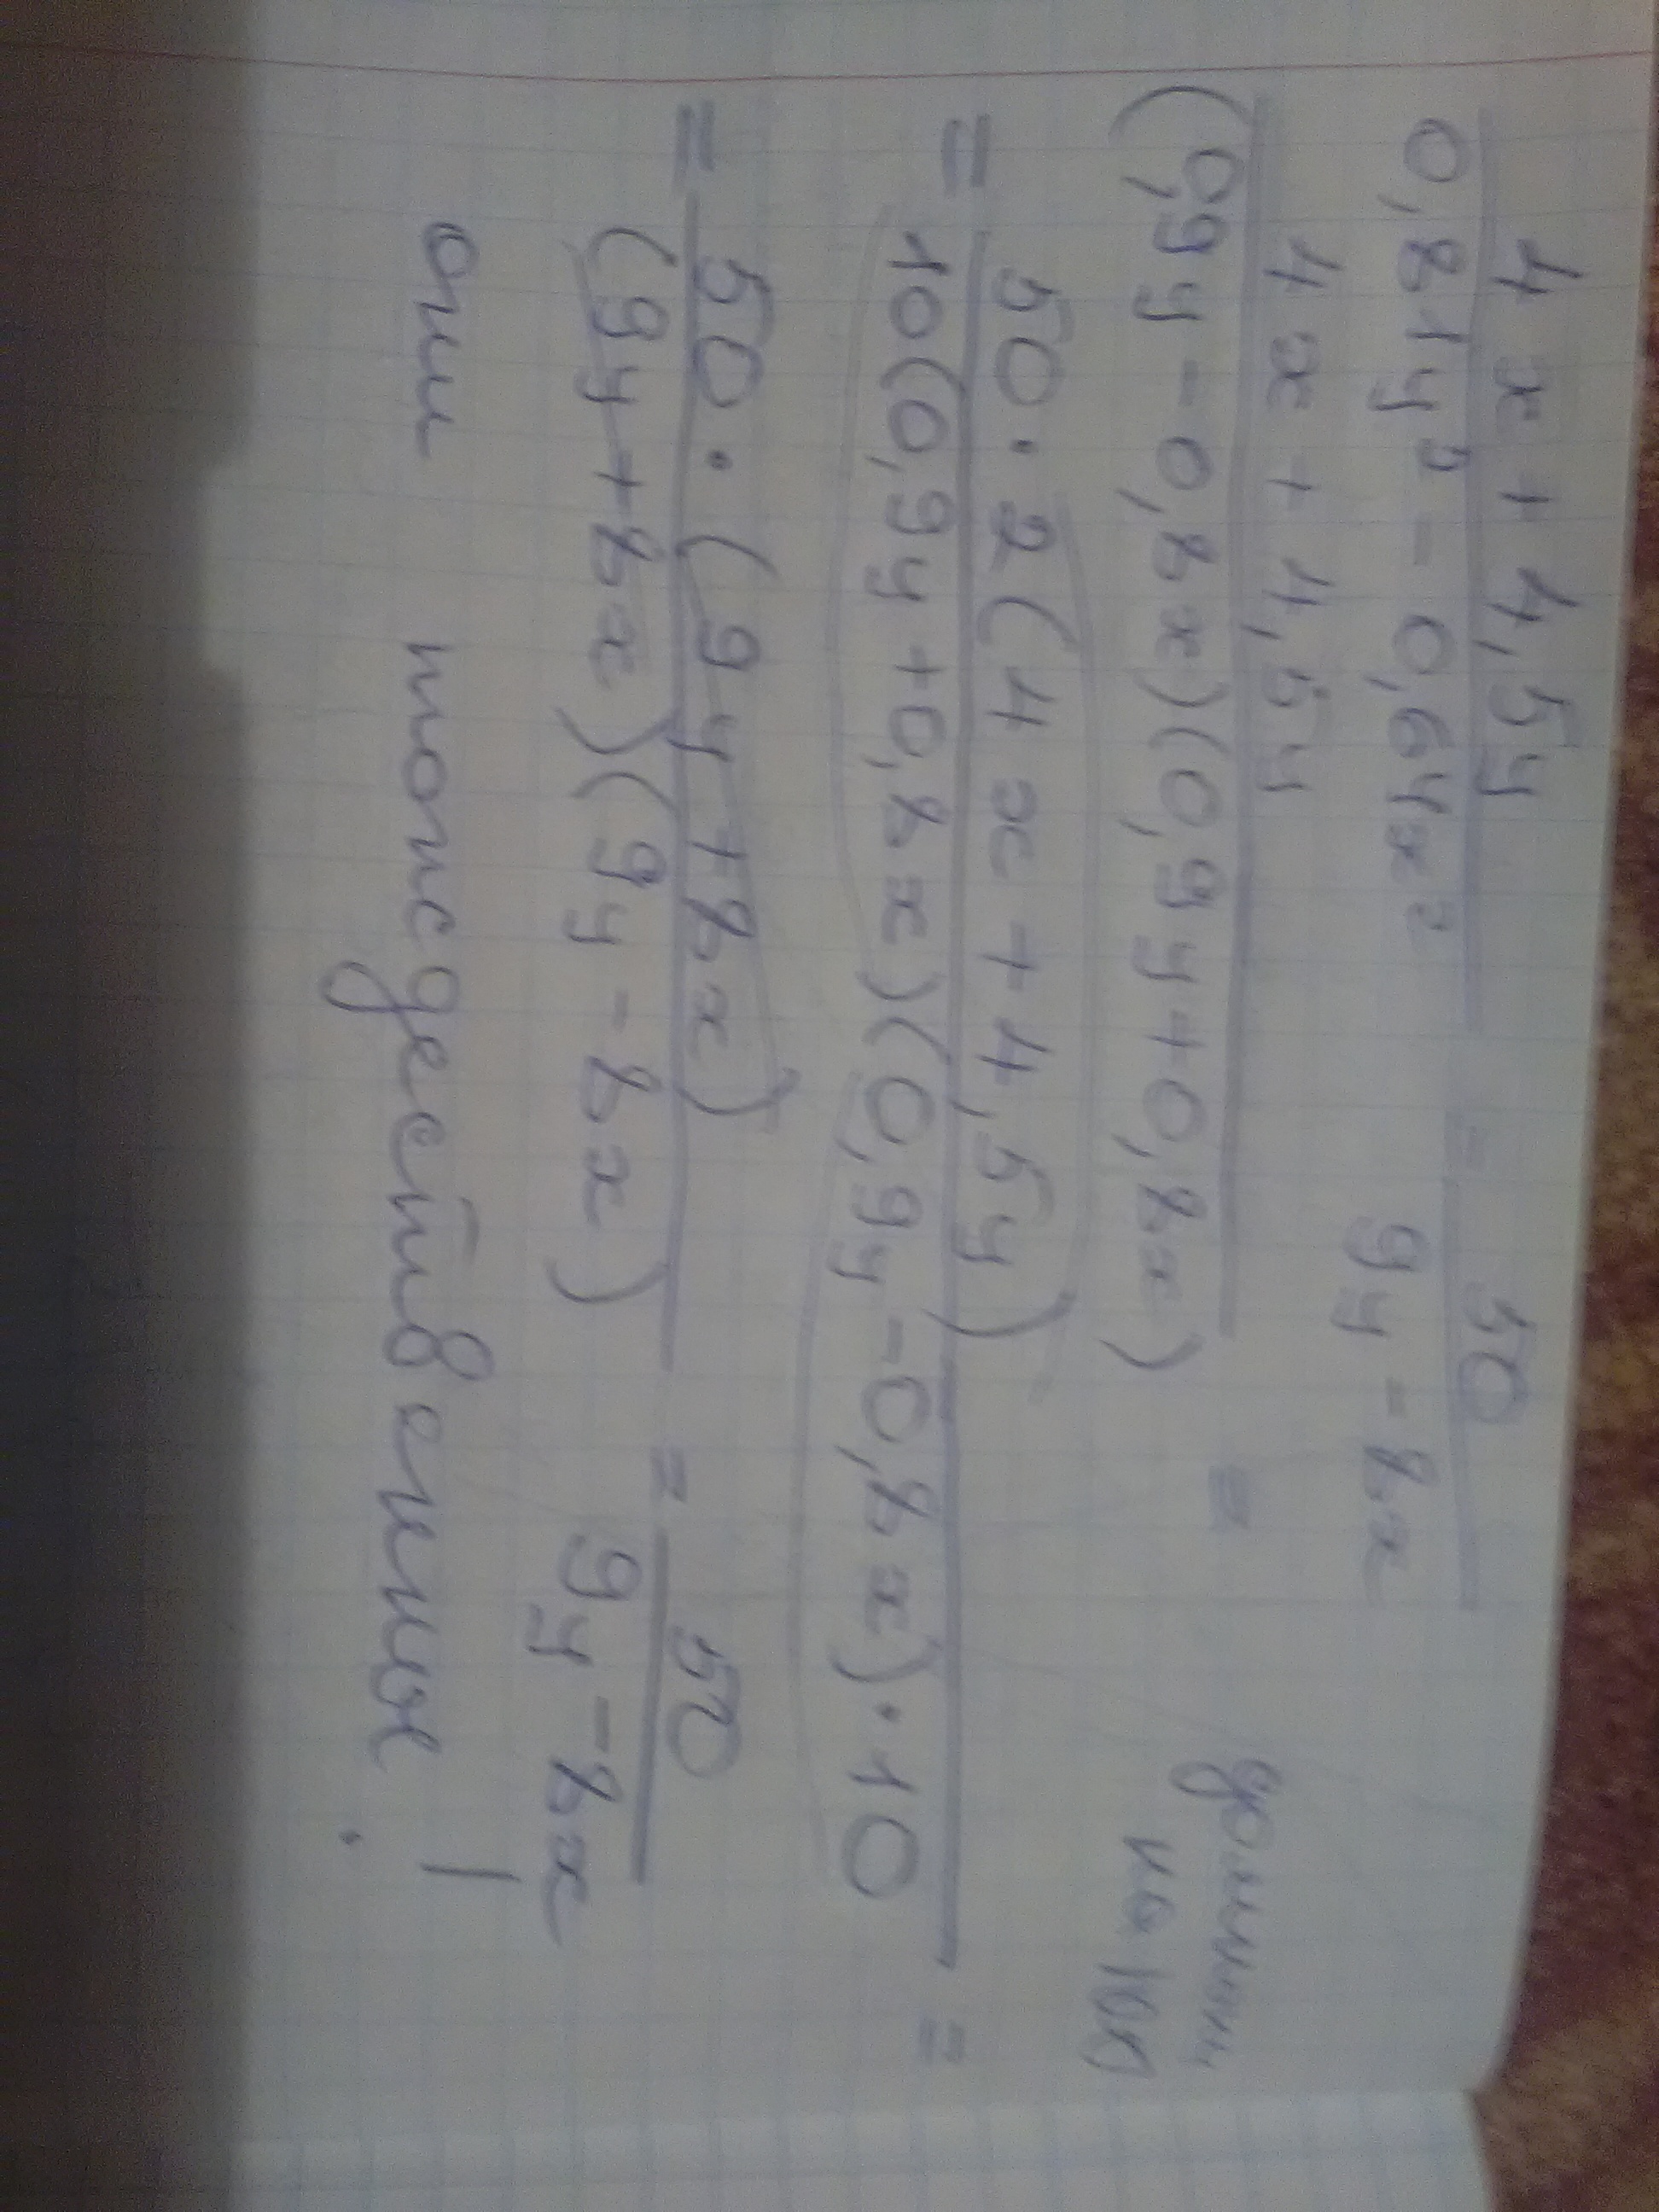 4x + 4,5y / 0,81y² - 0,64x² = 50 / 9y - 8x
4x + 4,5y / (0,9y - 0,8x)(0,9y + 0,8x) =
домнож
на 100
= 50 · 2(4x + 4,5y) / 10(0,9y + 0,8x)(0,9y - 0,8x) · 10 =
= 50 · (9y + 8x) / (9y + 8x)(9y - 8x) = 50 / 9y - 8x
они тождественны !